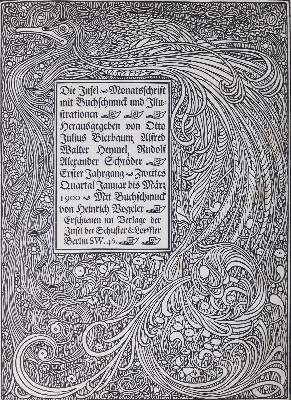 Die Insel Monatsschrift
mit Buchschmuck und Illu-
strationen
Herausgegeben von Otto
Julius Bierbaum, Alfred
Walter Heymel, Rudolf
Alexander Schröder
Erster Jahrgang – Zweites
Quartal Januar bis März
1900 – Mit Buchschmuck
von Heinrich Vogeler
Erschienen im Verlage der
Insel bei Schuster & Loeffler
Berlin SW. 46.